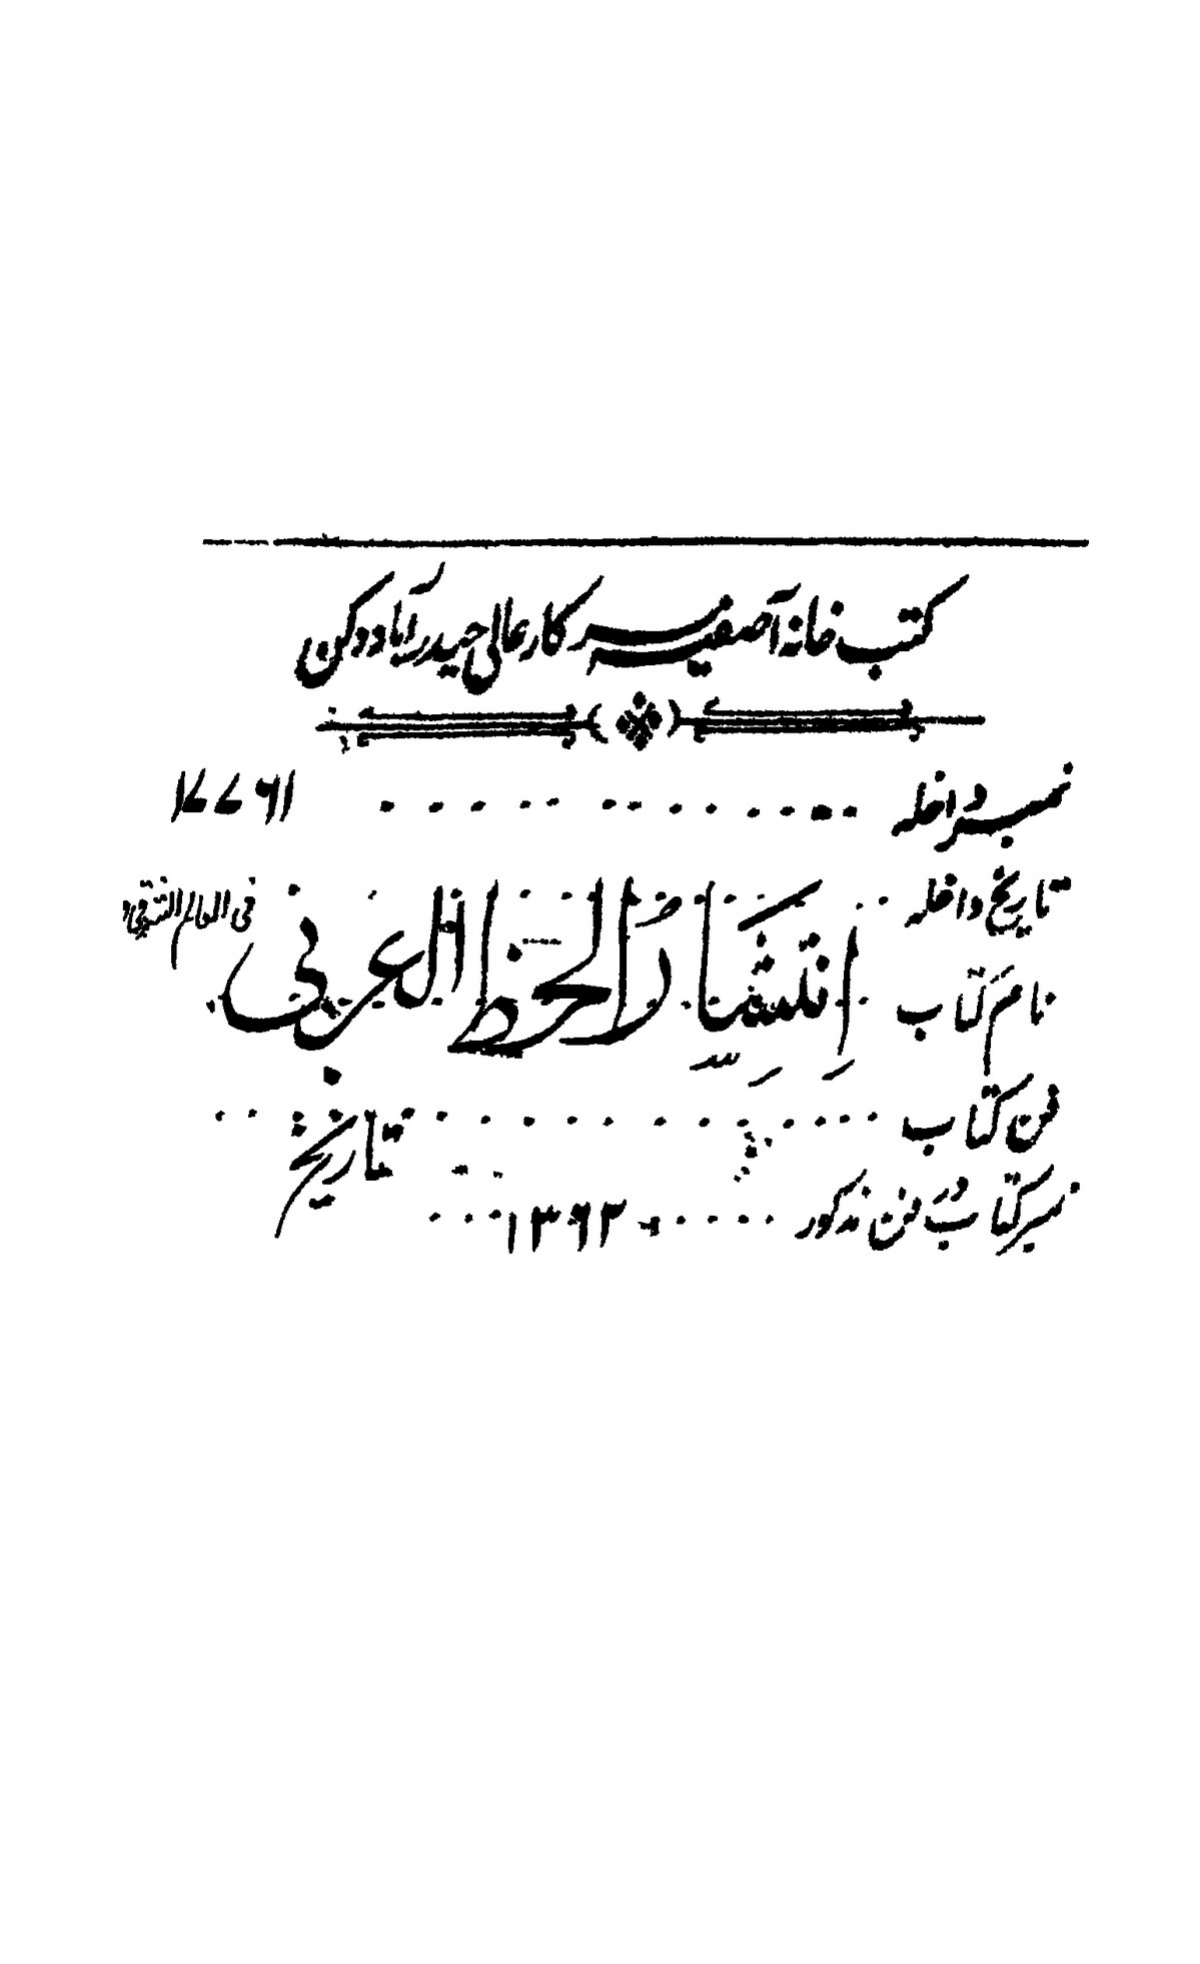 کتب خانہ آصفیہ سرکار عالی حیدرآباد دکن
نمبر داخلہ
تاریخ داخلہ
نام کتاب اِنتشار الخط العربی فی العالم
فن کتاب تاریخ
نمبر کتاب در فن مذکور ۱۳۶۳